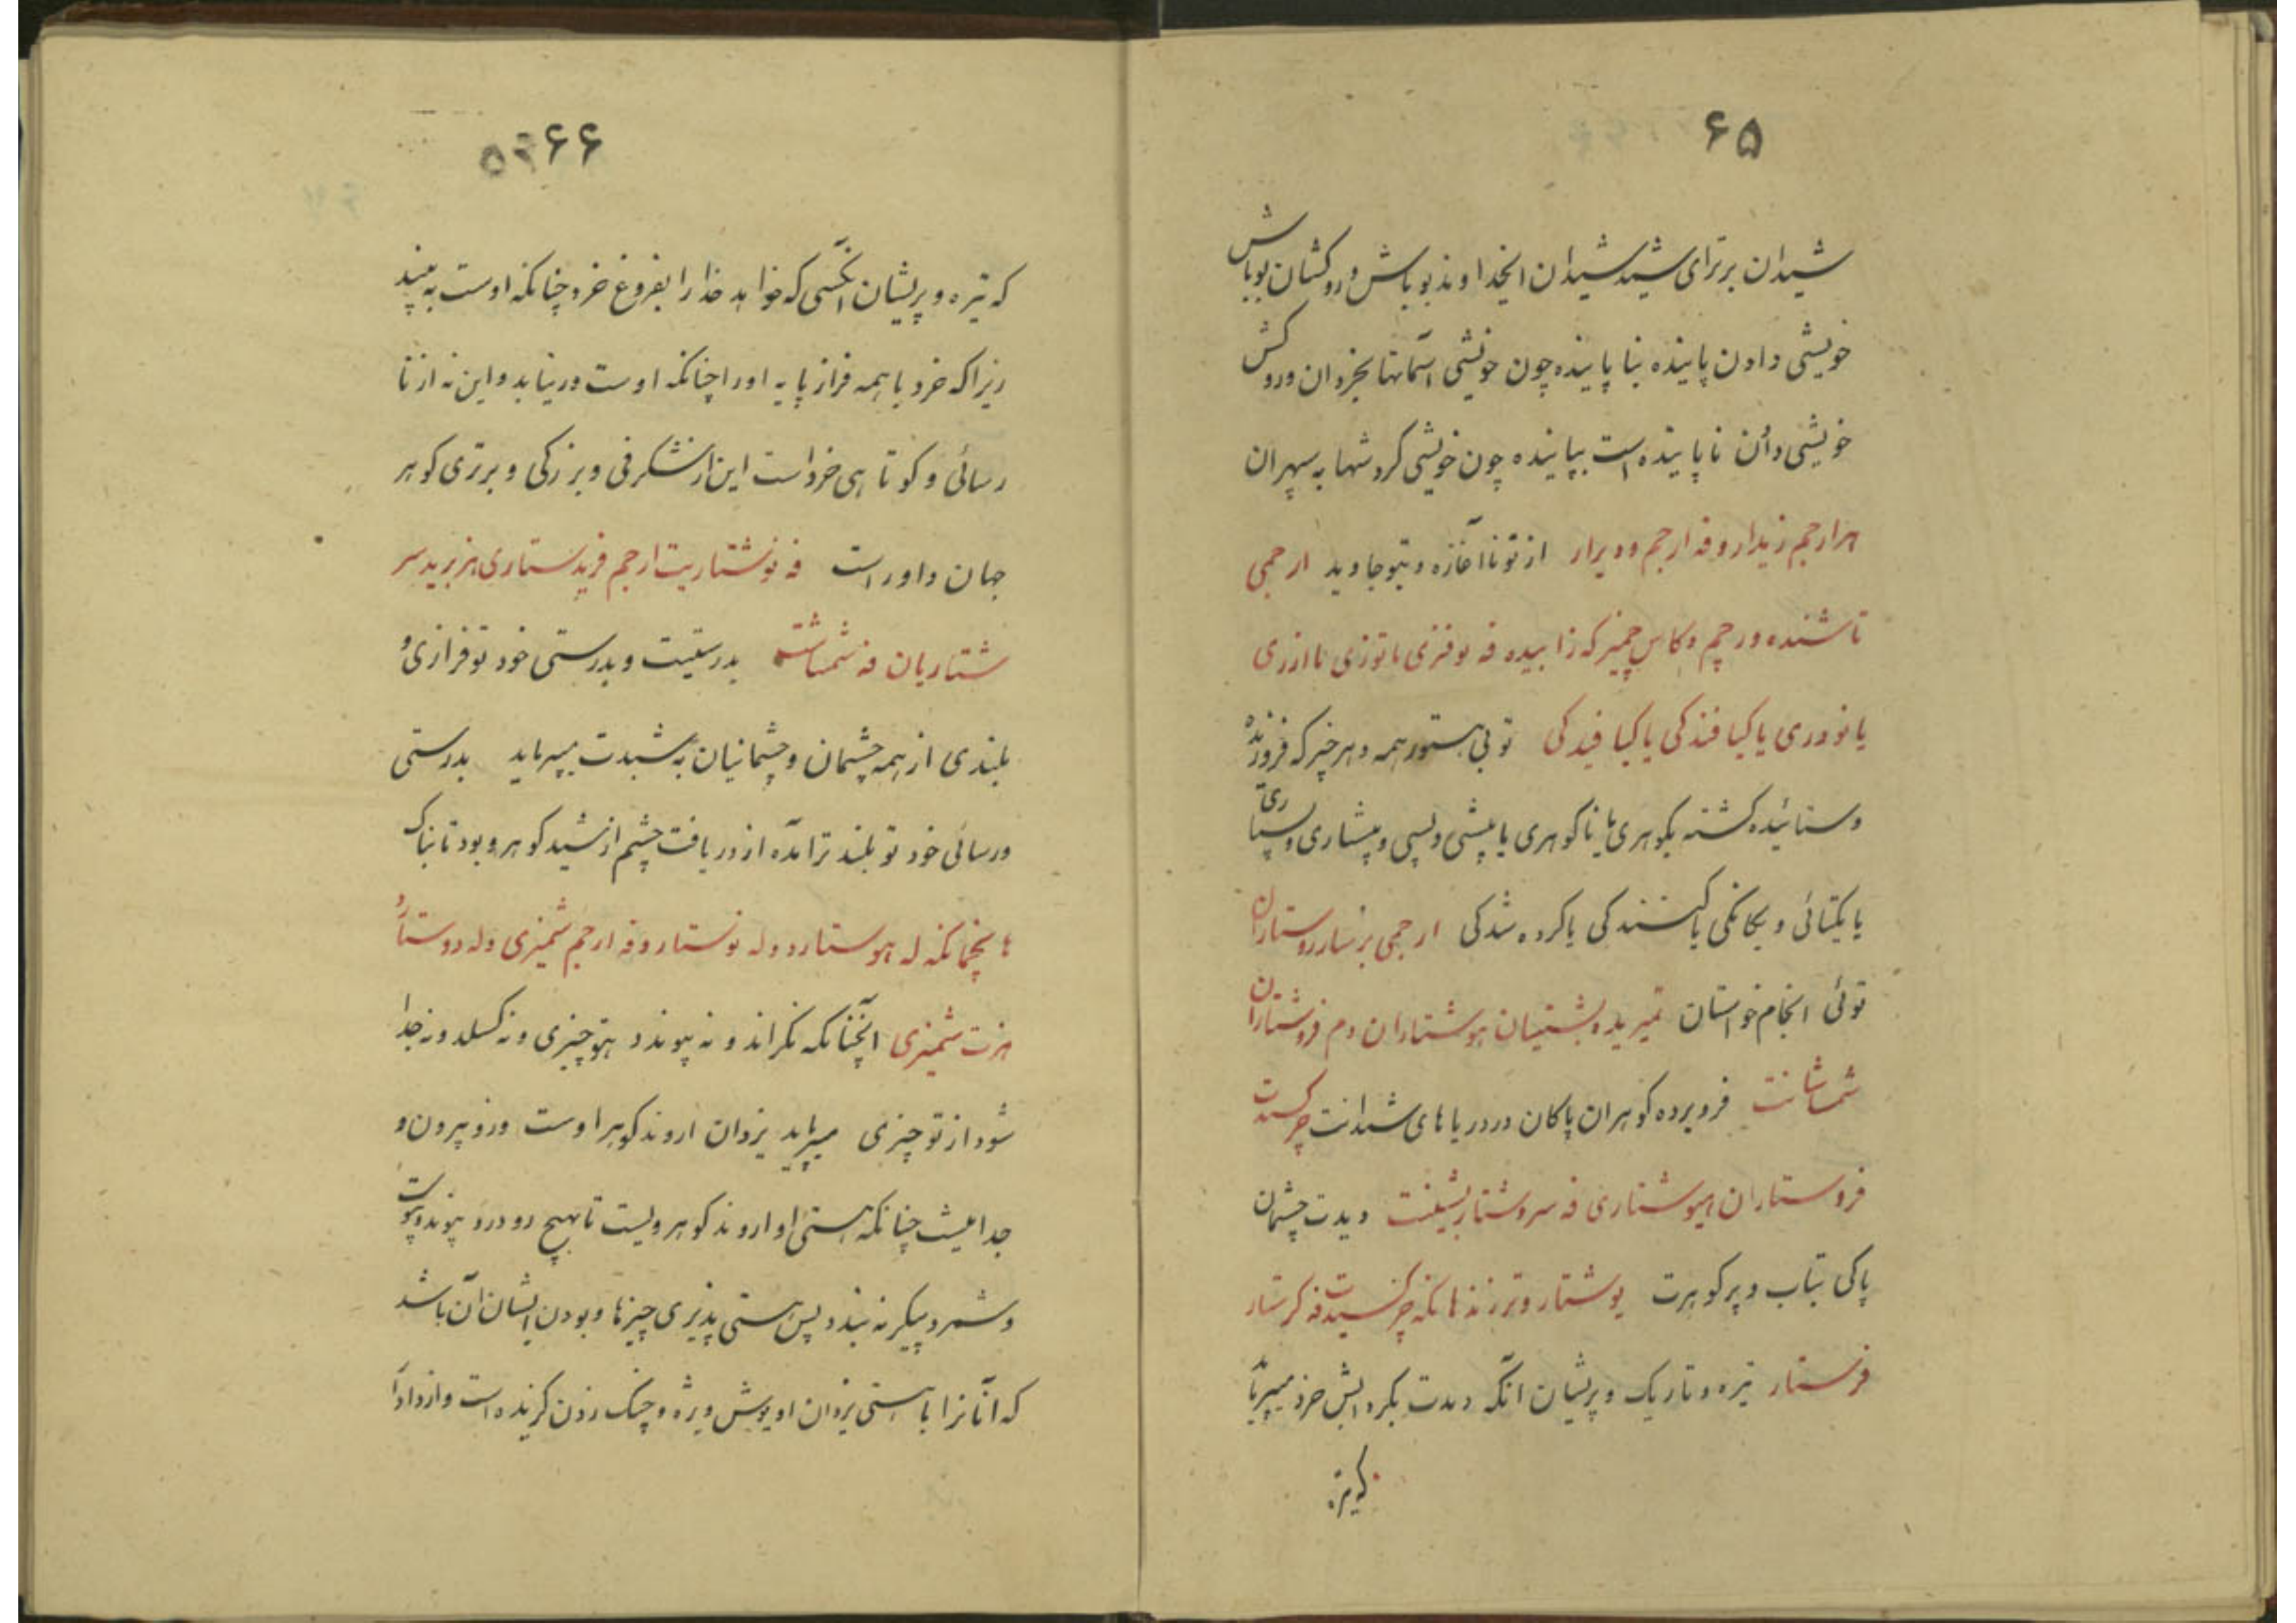 ۶۵
شیدان برترای شید شیدان ایخداوند بوباش و روکشان بوباش
خویشی دادن پاینده بنا پاینده چون خویشی آسمانها بخردان وروکش
خویشی دادن ناپاینده است بپاینده چون خویشی گردشها به سپهران
هرارجم زیدار وفه ارجم ودیرار از تو ناآغازه و بتو جاوید ارجمی
تاشنده ورجم وکاس جمیز که زابیده فه نوفزی یا توزی یا ارزی
یا نودری یا کیا فندکی یا کیا فیدکی تویی هستور همه و هر چیز که فروزنده
وستائیده گشته بگوهری یا ناگوهری یا بیشی و پسی و پیشاری و پسپاری
یا یکتائی و یگانگی یا کنندگی یا کرده شدگی ارجمی برسار روستاران
توئی انجام خواستان تمیریده بشتیان هوشتاران دم فروشتاران
شماشانت فروبرده گوهران پاکان در دریاهای شیدانت جرکسیدت
فروستاران هیوشتاری فه سروشتار بشیلنت دیدت چشمان
پاکی بتاب و پرگوهرت یوشتار و ترزند هانکه جرکسیدت فه کرستار
فرستار تیره و تاریک و پریشان آنکه دیدت بکردابش خرد میپرماید
که تیره
۶۶
که تیره و پریشان آنکسی که خواهد خدا را بفروغ خرد چنانکه اوست به بیند
زیرا که خرد با همه فراز پایه او را چنانکه اوست درنیابد و این نه از نا
رسائی و کوتاهی خرد است این از شگرفی و بزرگی و برتری گوهر
جهان داور است فه نوشتاریت ارجم فرید ستاری هزبرید سر
شتاریان فه شمشاشت بدرستیت و بدرستی خود تو فرازی و
بلندی از همه چشمان و چشمانیان به شیدت میپرماید بدرستی
ورسائی خود تو بلند ترآمده از دریافت چشم از شید گوهر و بود تابناک
هانچمانکه له هوستارد و له نوستارد فه ارجم شمیزی و له دوستارد
هزت شمیزی آنچنانکه نگراند و نه پیوندد بتو چیزی و نه گسلد و نه جدا
شود از تو چیزی میپرماید یزدان اروند گوهر اوست و رو بیرون و
جدا نیست چنانکه هستی او اروند گوهر ویست تا بهیچ رو درو پیوند و پیوست
و شمرد و پیکر نه بندد پس هستی پذیری چیزها و بودن ایشان آن باشد
که آنانرا با هستی یزدان او پوش ویژه و چنگ زدن گزیده است و ازداد آ